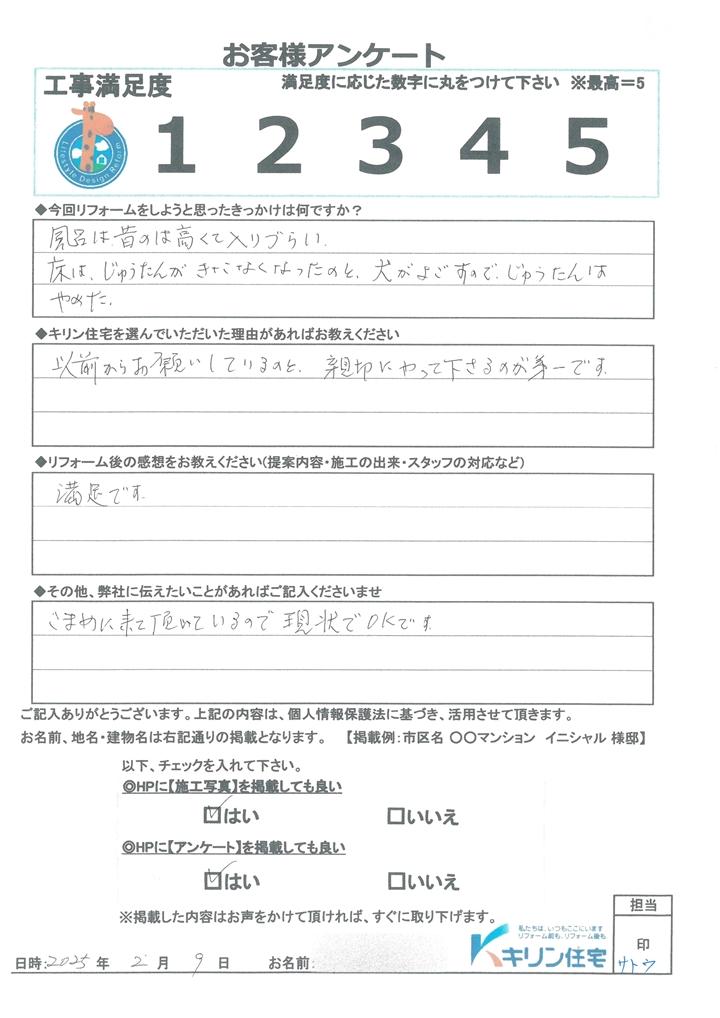 お客様アンケート
工事満足度　満足度に応じた数字に丸をつけて下さい　※最高＝5
Lifestyle Design Reform
1 2 3 4 5
◆今回リフォームをしようと思ったきっかけは何ですか？
風呂は、昔のは高くて入りづらい。
床は、じゅうたんがきたなくなったのと、犬がよごすので、じゅうたんは
やめた。
◆キリン住宅を選んでいただいた理由があればお教えください
以前からお願いしているのと、親切にやって下さるのが第一です。
◆リフォーム後の感想をお教えください(提案内容・施工の出来・スタッフの対応など)
満足です。
◆その他、弊社に伝えたいことがあればご記入くださいませ
こまめに来て頂いているので現状でOKです。
ご記入ありがとうございます。上記の内容は、個人情報保護法に基づき、活用させて頂きます。
お名前、地名・建物名は右記通りの掲載となります。　【掲載例：市区名 〇〇マンション　イニシャル 様邸】
以下、チェックを入れて下さい。
◎HPに【施工写真】を掲載しても良い
☑はい　□いいえ
◎HPに【アンケート】を掲載しても良い
☑はい　□いいえ
※掲載した内容はお声をかけて頂ければ、すぐに取り下げます。
担当
印
サトウ
私たちは、いつもここにいます
リフォーム前も、リフォーム後も
キリン住宅
日時：2025 年 2 月 9 日　お名前：